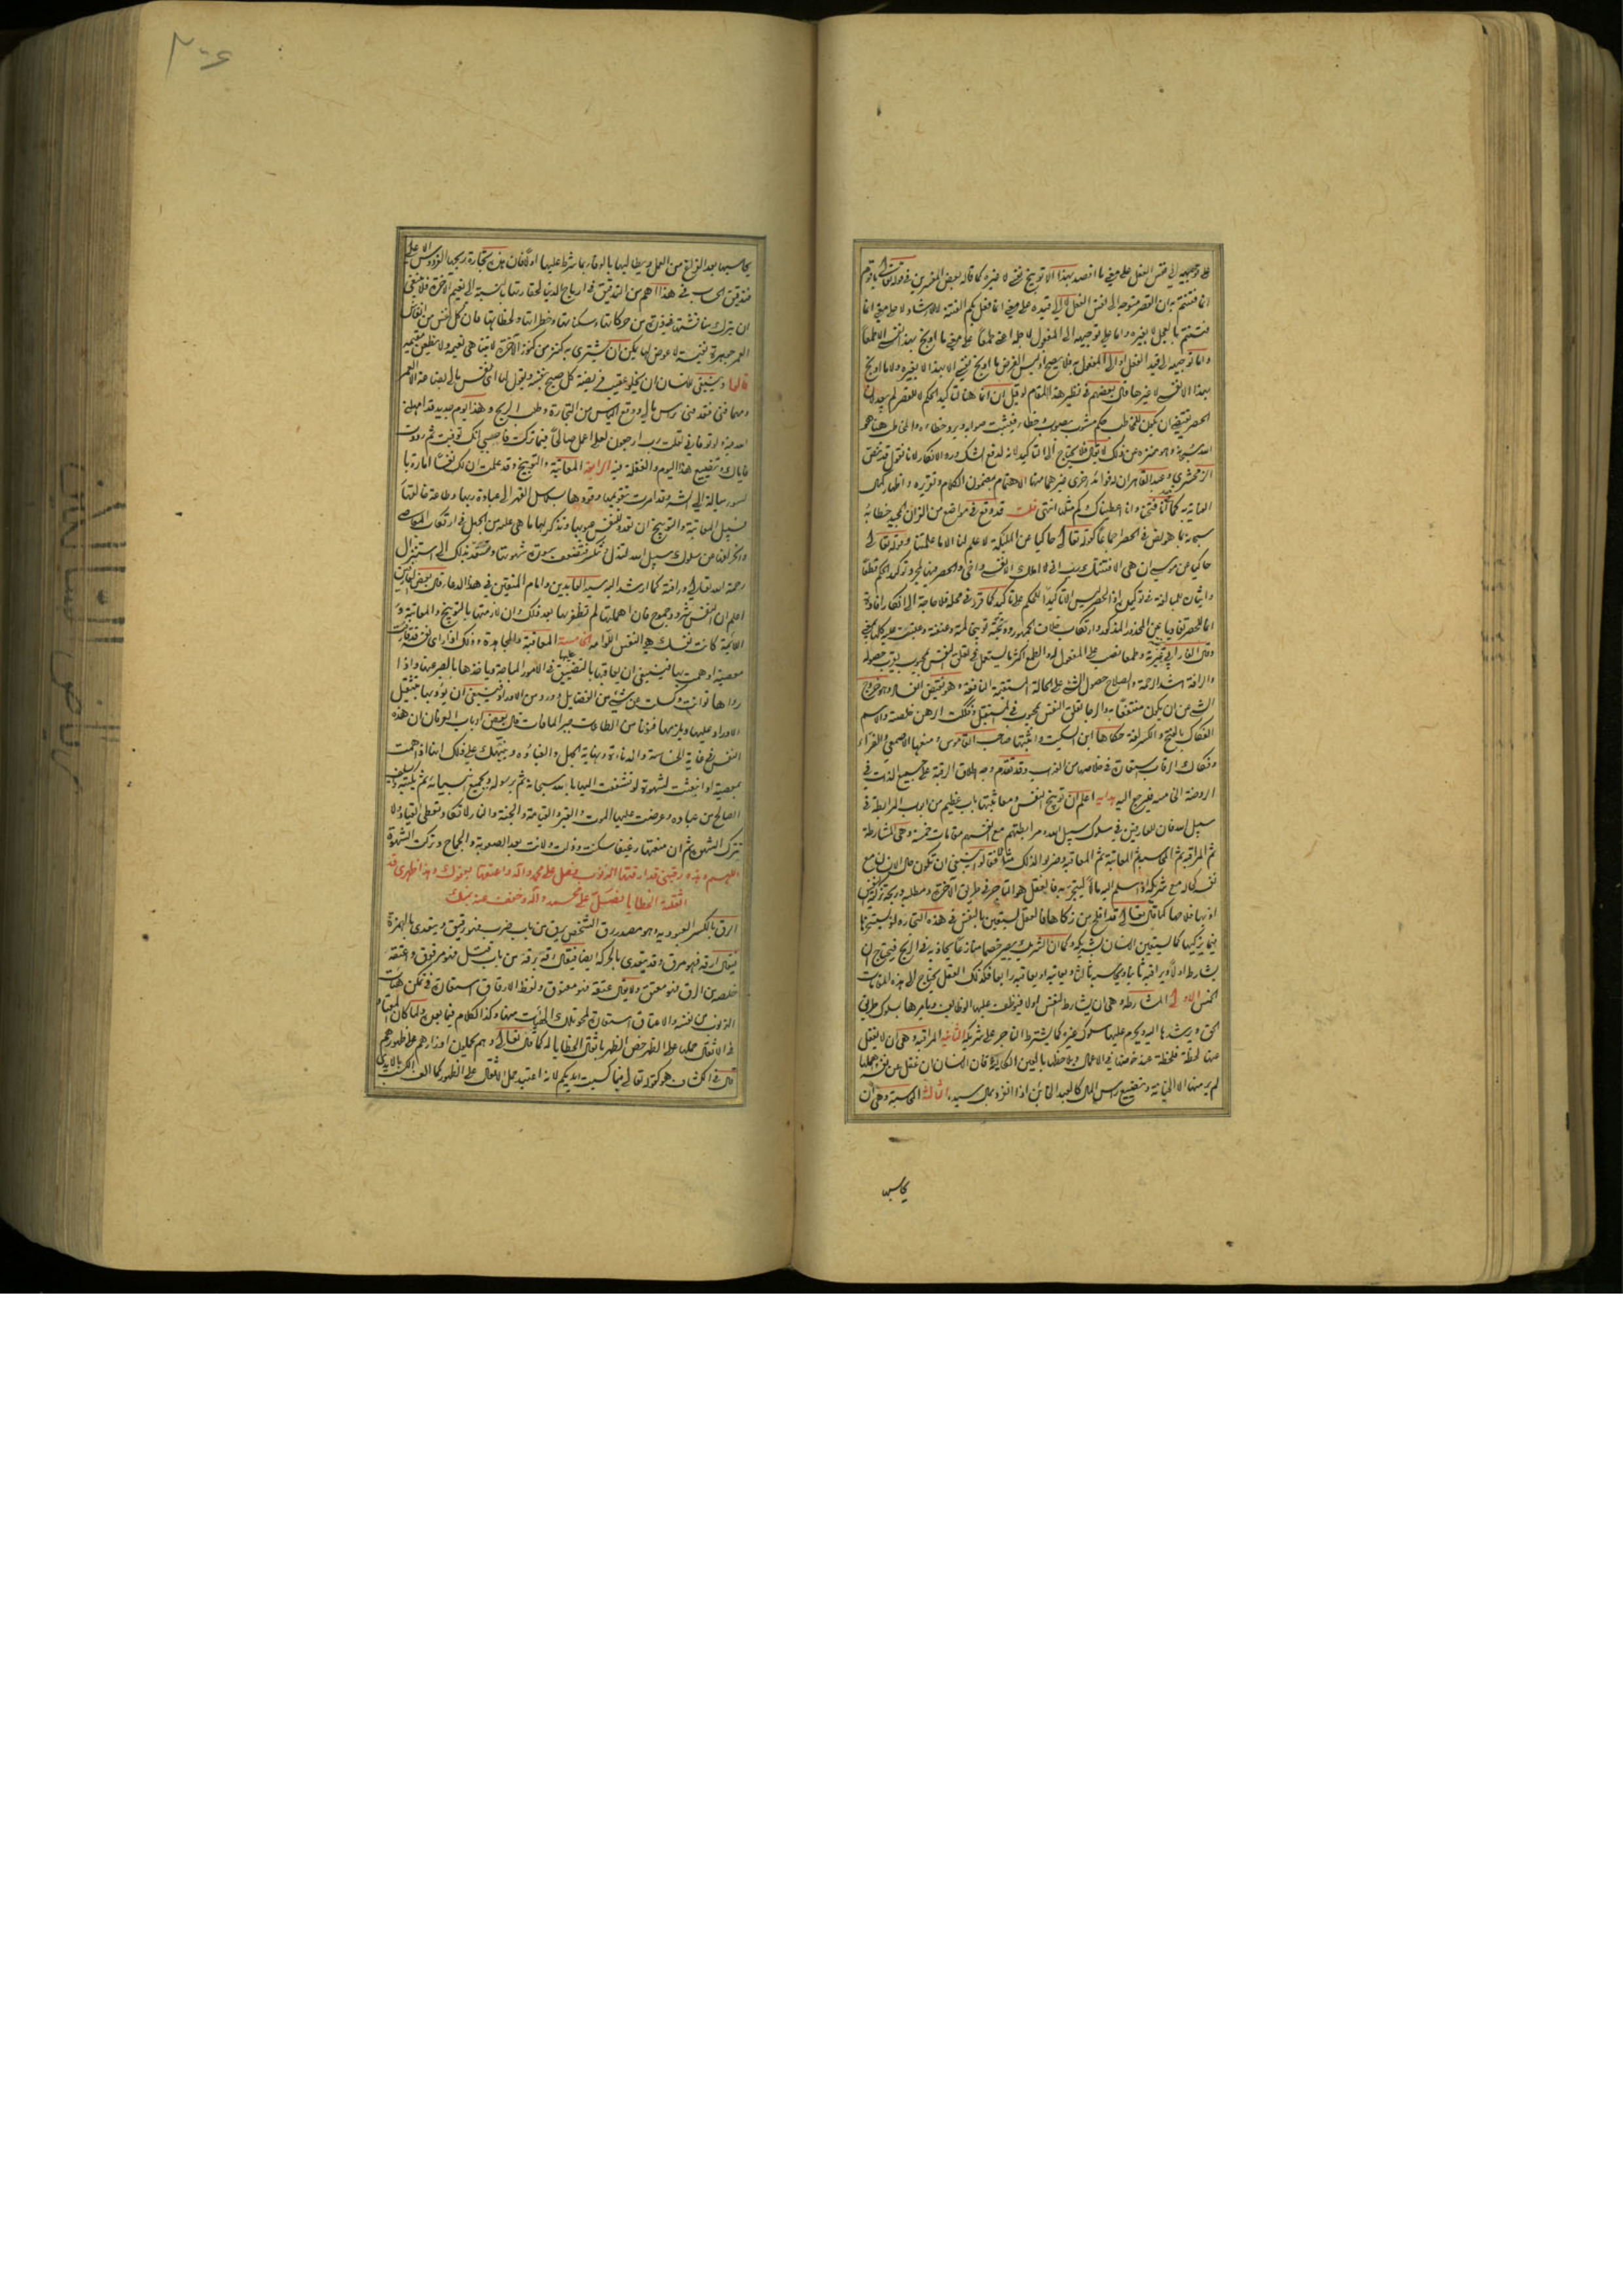 على توجيهه إلى نفس الفعل على معنى ما اقصد بهذا الا توبيخ نفسي لا غيره كما قاله بعض المفسرين في قوله تعالى يا قوم
انما فتنتم به ان القصر متوجه إلى نفس الفعل لا إلى قيده على معنى انما فعل بكم الفتنة لا الارشاد ولا على معنى انما
فتنتم بالعجل لا بغيره واما على توجيهه إلى المفعول لاجله اعني طمعا على معنى ما اوبخ بهذا نفسي الا طمعا
واما توجيهه إلى قيد الفعل او إلى المفعول به فلا يصح اذ ليس الغرض ما اوبخ نفسي الا بهذا لا بغيره ولا ما اوبخ
بهذا الا نفسي لا غيرها قال بعضهم في نظير هذا المقام لو قيل ان انما هنا لتأكيد الحكم لا للقصر لم يبعد لان
الحصر يقتضي ان يكون للمخاطب حكم مشوب بصواب وخطاء فيثبت صوابه ويرد خطاءه والمخاطب هنا هو
الله سبحانه وهو منزه عن ذلك لا يقال فلا يحتاج إلى التاكيد لانه لدفع الشك ورد الانكار لانا نقول قد نص
الزمخشري وعبد القاهر ان له فوائد اخرى غيرهما منها الاهتمام بمضمون الكلام وتقريره واظهار كمال
العناية به كما انا فتحنا وانا اعطيناك مثلا انتهى قلت قد وقع في مواضع من القران المجيد خطابه
سبحانه بما هو نص في الحصر اجماعا كقوله تعالى حاكيا عن الملئكة لا علم لنا الا ما علمتنا وقوله تعالى
حاكيا عن موسى ان هي الا فتنتك رب اني لا املك الا نفسي واخي والحصر فيها لمجرد توكيد الحكم قطعا
وايثار للمبالغة في توكيده اذ الحصر ليس الا تاكيدا للحكم على تاكيد كما قرر في محله فلا حاجة الى انكار افادة
انما للحصر تفاديا عن المحذور المذكور وارتكاب خلاف الجمهور ووبخته توبيخا لمته وعنفته وعتبت عليه كلها بمعنى
وقال الفارابي عيرته وطمعا نصب على المفعول له والطمع اكثر ما يستعمل في تعلق النفس بمحبوب يقرب حصوله
والرافة اشد الرحمة والصلاح حصول الشئ على الحالة المستقيمة النافعة وهو نقيض الفساد وهو خروج
الشئ من ان يكون منتفعا به والرجا تعلق النفس بمحبوب في المستقبل وفككت الرهن خلصته والاسم
الفكاك بالفتح والكسر لغة حكاها ابن السكيت واثبتها صاحب القاموس ومنعها الاصمعي والفراء
وفكاك الرقاب استعارة في خلاصها من العذاب وقد تقدم وجه اطلاق الرقبة على جميع الذات في
الروضة الخامسة فليرجع اليه هداية اعلم ان توبيخ النفس ومعاتبتها باب عظيم من ابواب المرابطة في
سبيل الله فان للعارفين في سلوك سبيل الله ومرابطتهم مع انفسهم مقامات خمسة وهي المشارطة
ثم المراقبة ثم المحاسبة ثم المعاتبة ثم المعاقبة وضربوا لذلك مثلا فقالوا ينبغي ان تكون حال الانسان مع
نفسه كحاله مع شريكه اذا سلم اليه مالا ليتجر به فالعقل هو التاجر في طريق الاخرة ومطلبه وربحه تزكية النفس
اذ بها فلاحها كما قال تعالى قد افلح من زكاها فالعقل يستعين بالنفس في هذه التجارة لو يستعين بها
فيما يزكيها كما يستعين الانسان بشريكه وكما ان الشريك يصير خصما منازعا يجاذبه في الربح فيحتاج ان
يشارطه اولا ويراقبه ثانيا ويحاسبه ثالثا ويعاتبه او يعاقبه رابعا فكذلك العقل يحتاج إلى هذه المقامات
الخمس الاولى المشارطة وهي ان يشارط النفس اولا فيوظف عليها الوظائف ويامرها بسلوك طريق
الحق ويرشدها اليه ويحرم عليها سلوك غيره كما يشترط التاجر على شريكه الثانية المراقبة وهي ان لا يغفل
عنها لحظة فلحظة عند خوضها في الاعمال ويلاحظها بالعين الكالئة فان الانسان ان غفل عن نفسه واهملها
لم ير منها الا الخيانة وتضييع راس المال كالعبد الخائن اذا انفرد بمال سيده الثالثة المحاسبة وهي ان
يحاسبها
يحاسبها بعد الفراغ من العمل ويطالبها بالوفاء بما شرط عليها اولا فان هذه تجارة ربحها الفردوس الاعلى
فتدقيق الحساب في هذا اهم من التدقيق في ارباح الدنيا لحقارتها بالنسبة إلى نعيم الاخرة فلا ينبغي
ان يترك مناقشتها في ذرة من حركاتها وسكناتها وخطراتها ولحظاتها فان كل نفس من انفاس
العمر جوهرة نفيسة لا عوض لها يمكن ان يشتري به كنز من كنوز الاخرة لا يتناهى نعيمه ولا يظعن مقيمه
قالوا وينبغي للانسان ان يخلو عقيب فريضة كل صبح بنفسه ويقول لها اي نفس ما لي بضاعة الا العمر
ومهما فني فقد فني رأس مالي ووقع الياس من التجارة وطلب الربح وهذا يوم جديد قد امهلني
الله فيه ولو توفاني لقلت رب ارجعون لعلي اعمل صالحا فيما تركت فاحسبي انك توفيت ثم رددت
فاياك وتضييع هذا اليوم والغفلة فيه الرابعة المعاتبة والتوبيخ وقد علمت ان لك نفسا امارة با
لسوء ميالة إلى الشر وقد امرت بتقويمها وقودها بسلاسل القهر إلى عبادة ربها وطاعة خالقها
فسبيل المعاتبة والتوبيخ ان تعد على نفس عيوبها وتذكر لها ما هي عليه من الجهل في ارتكاب المعاصي
وانحرافها عن سلوك سبيل الله لتذل وتنكسر فتضعف سورة شهوتها وتستعد بذلك إلى استنزال
رحمة الله تعالى ورافته كما ارشد اليه سيد العابدين وامام المتقين في هذا الدعاء قال بعض العارفين
اعلم ان النفس شرود جموح فان اهملتها لم تظفر بها بعد ذلك وان لازمتها بالتوبيخ والمعاتبة و
اللائمة كانت نفسك هي النفس اللوامة الخامسة المعاقبة والمجاهدة وذلك اذا راى نفسه قد قارفت
معصية او همت بها فينبغي ان يعاقبها بالتضييق عليها في الامور المباحة وياخذها بالصبر عنها واذا
رءاها توانت وكسلت عن شئ من الفضايل وورد من الاوراد فينبغي ان يؤدبها بتثقيل
الاوراد عليها ويلزمها فنونا من الطاعات جبرا لما فات قال بعض ارباب العرفان ان هذه
النفس في غاية الخساسة والدناءة ونهاية الجهل والغباوة وينبهك على ذلك انها اذا همت
بمعصية او انبعثت لشهوة لو تشفعت اليها بالله سبحانه ثم برسوله وبجميع انبيائه ثم بكتبه والسلف
الصالح من عباده وعرضت عليها الموت والقبر والقيامة والجنة والنار لا تكاد تعطي القياد ولا
تترك الشهوة ثم ان منعتها رغيفا سكنت وذلت ولانت بعد الصعوبة والجماح وتركت الشهوة
اللهم وهذه رقبتي قد ارقتها الذنوب فصل على محمد واله واعتقها بعفوك وهذا ظهري قد
اثقلته الخطايا فصل على محمد واله وخفف عنه بمنك
الرق بالكسر العبودية وهو مصدر رق الشخص يرق من باب ضرب فهو رقيق ويتعدى بالهمزة
فيقال ارقه فهو مرق وقد يتعدى بالحركة ايضا فيقال رقه يرقه من باب قتل فهو مرقوق واعتقه
خلصه من الرق فهو معتق ولا يقال عتقه فهو معتوق ولفظ الارقاق استعارة في تمكن هيئات
الذنوب من نفسه والاعتاق استعارة لمحو تلك الهيئات عنها وكذا الكلام فيما بعده ولما كان المعتاد
في الاثقال حملها على الظهر خص الظهر باثقال الخطايا له كما قال تعالى وهم يحملون اوزارهم على ظهورهم
قال في الكشاف هو كقوله تعالى فبما كسبت ايديكم لانه اعتيد حمل الاثقال على الظهور كما الف الكسب بالايدي